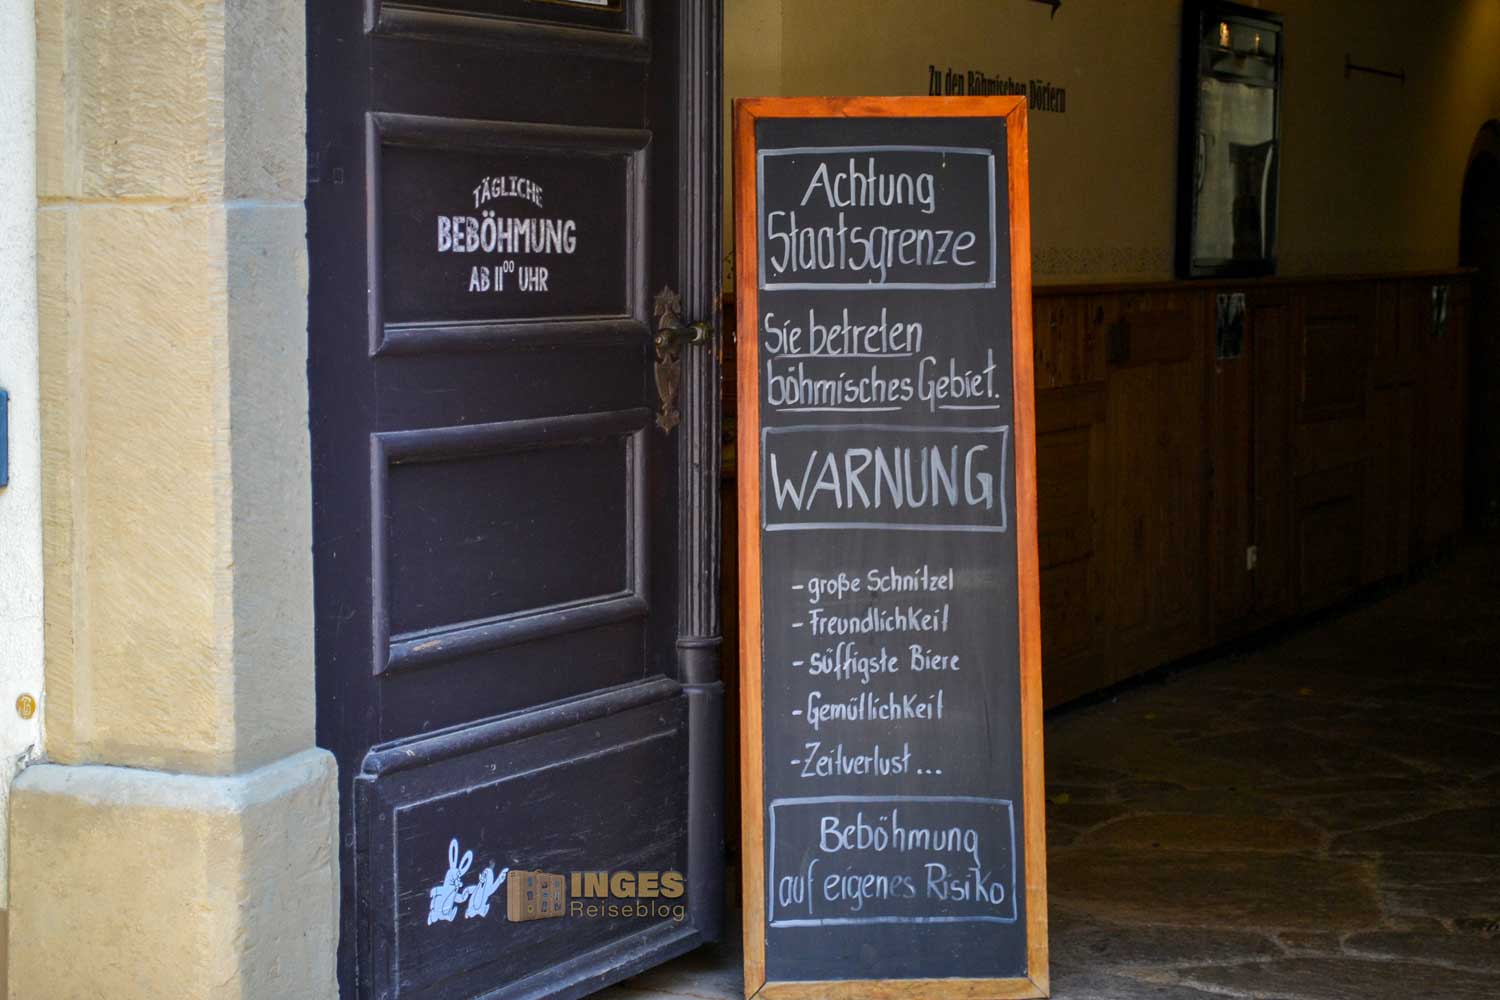 Zu den Böhmischen Dörfern
TÄGLICHE
BEBÖHMUNG
AB 11⁰⁰ UHR
Achtung
Staatsgrenze
Sie betreten
böhmisches Gebiet.
WARNUNG
- große Schnitzel
- Freundlichkeit
- süffigste Biere
- Gemütlichkeit
- Zeitverlust...
Beböhmung
auf eigenes Risiko
INGES
Reiseblog